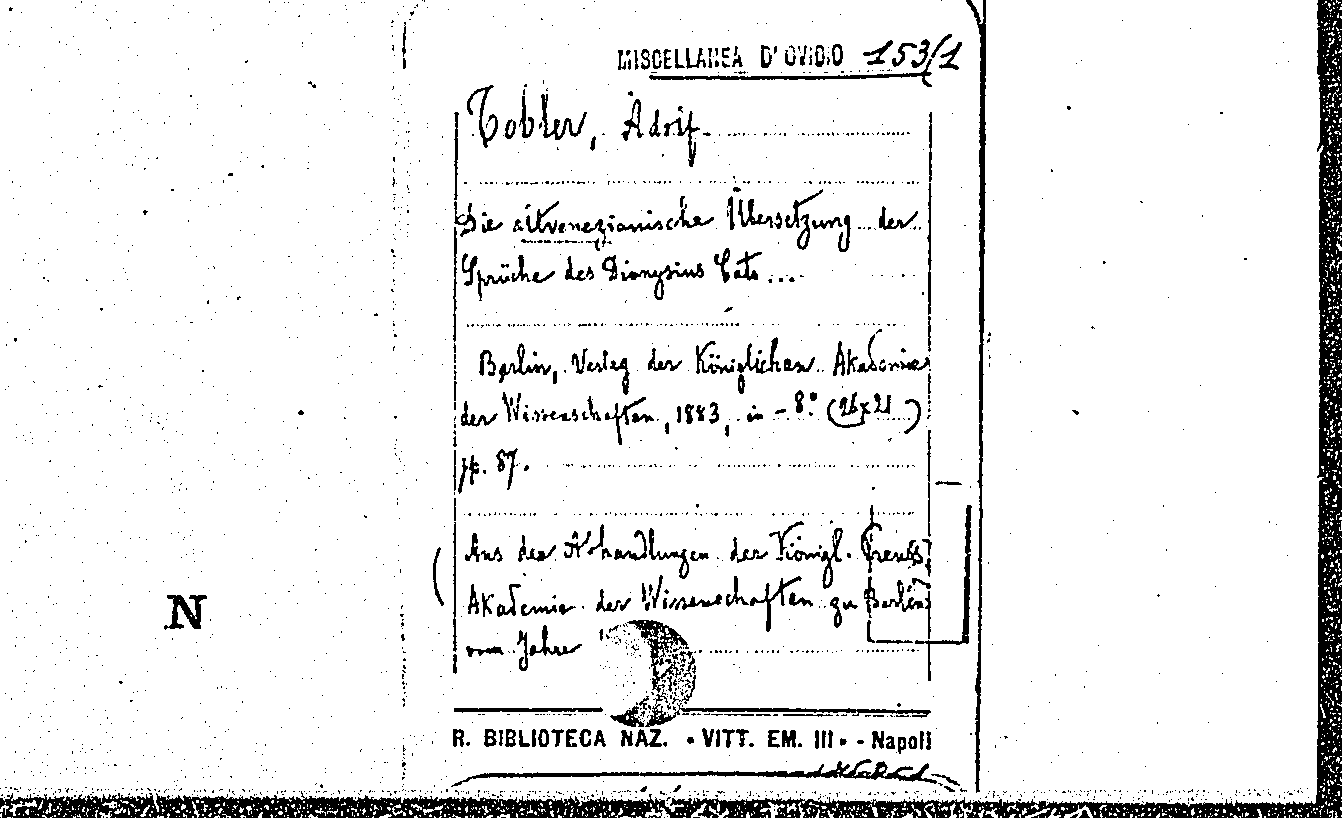 MISCELLANEA D'OVIDIO 153/1
Tobler, Adolf
Die altvenezianische Übersetzung der
Sprüche des Dionysius Cato ...
Berlin, Verlag der Königlichen Akademie
der Wissenschaften, 1883, in - 8.° (26x21)
pp. 87.
(Aus den Abhandlungen der Königl. Preuss.
Akademie der Wissenschaften zu Berlin
vom Jahre
N
R. BIBLIOTECA NAZ. • VITT. EM. III • - Napoli